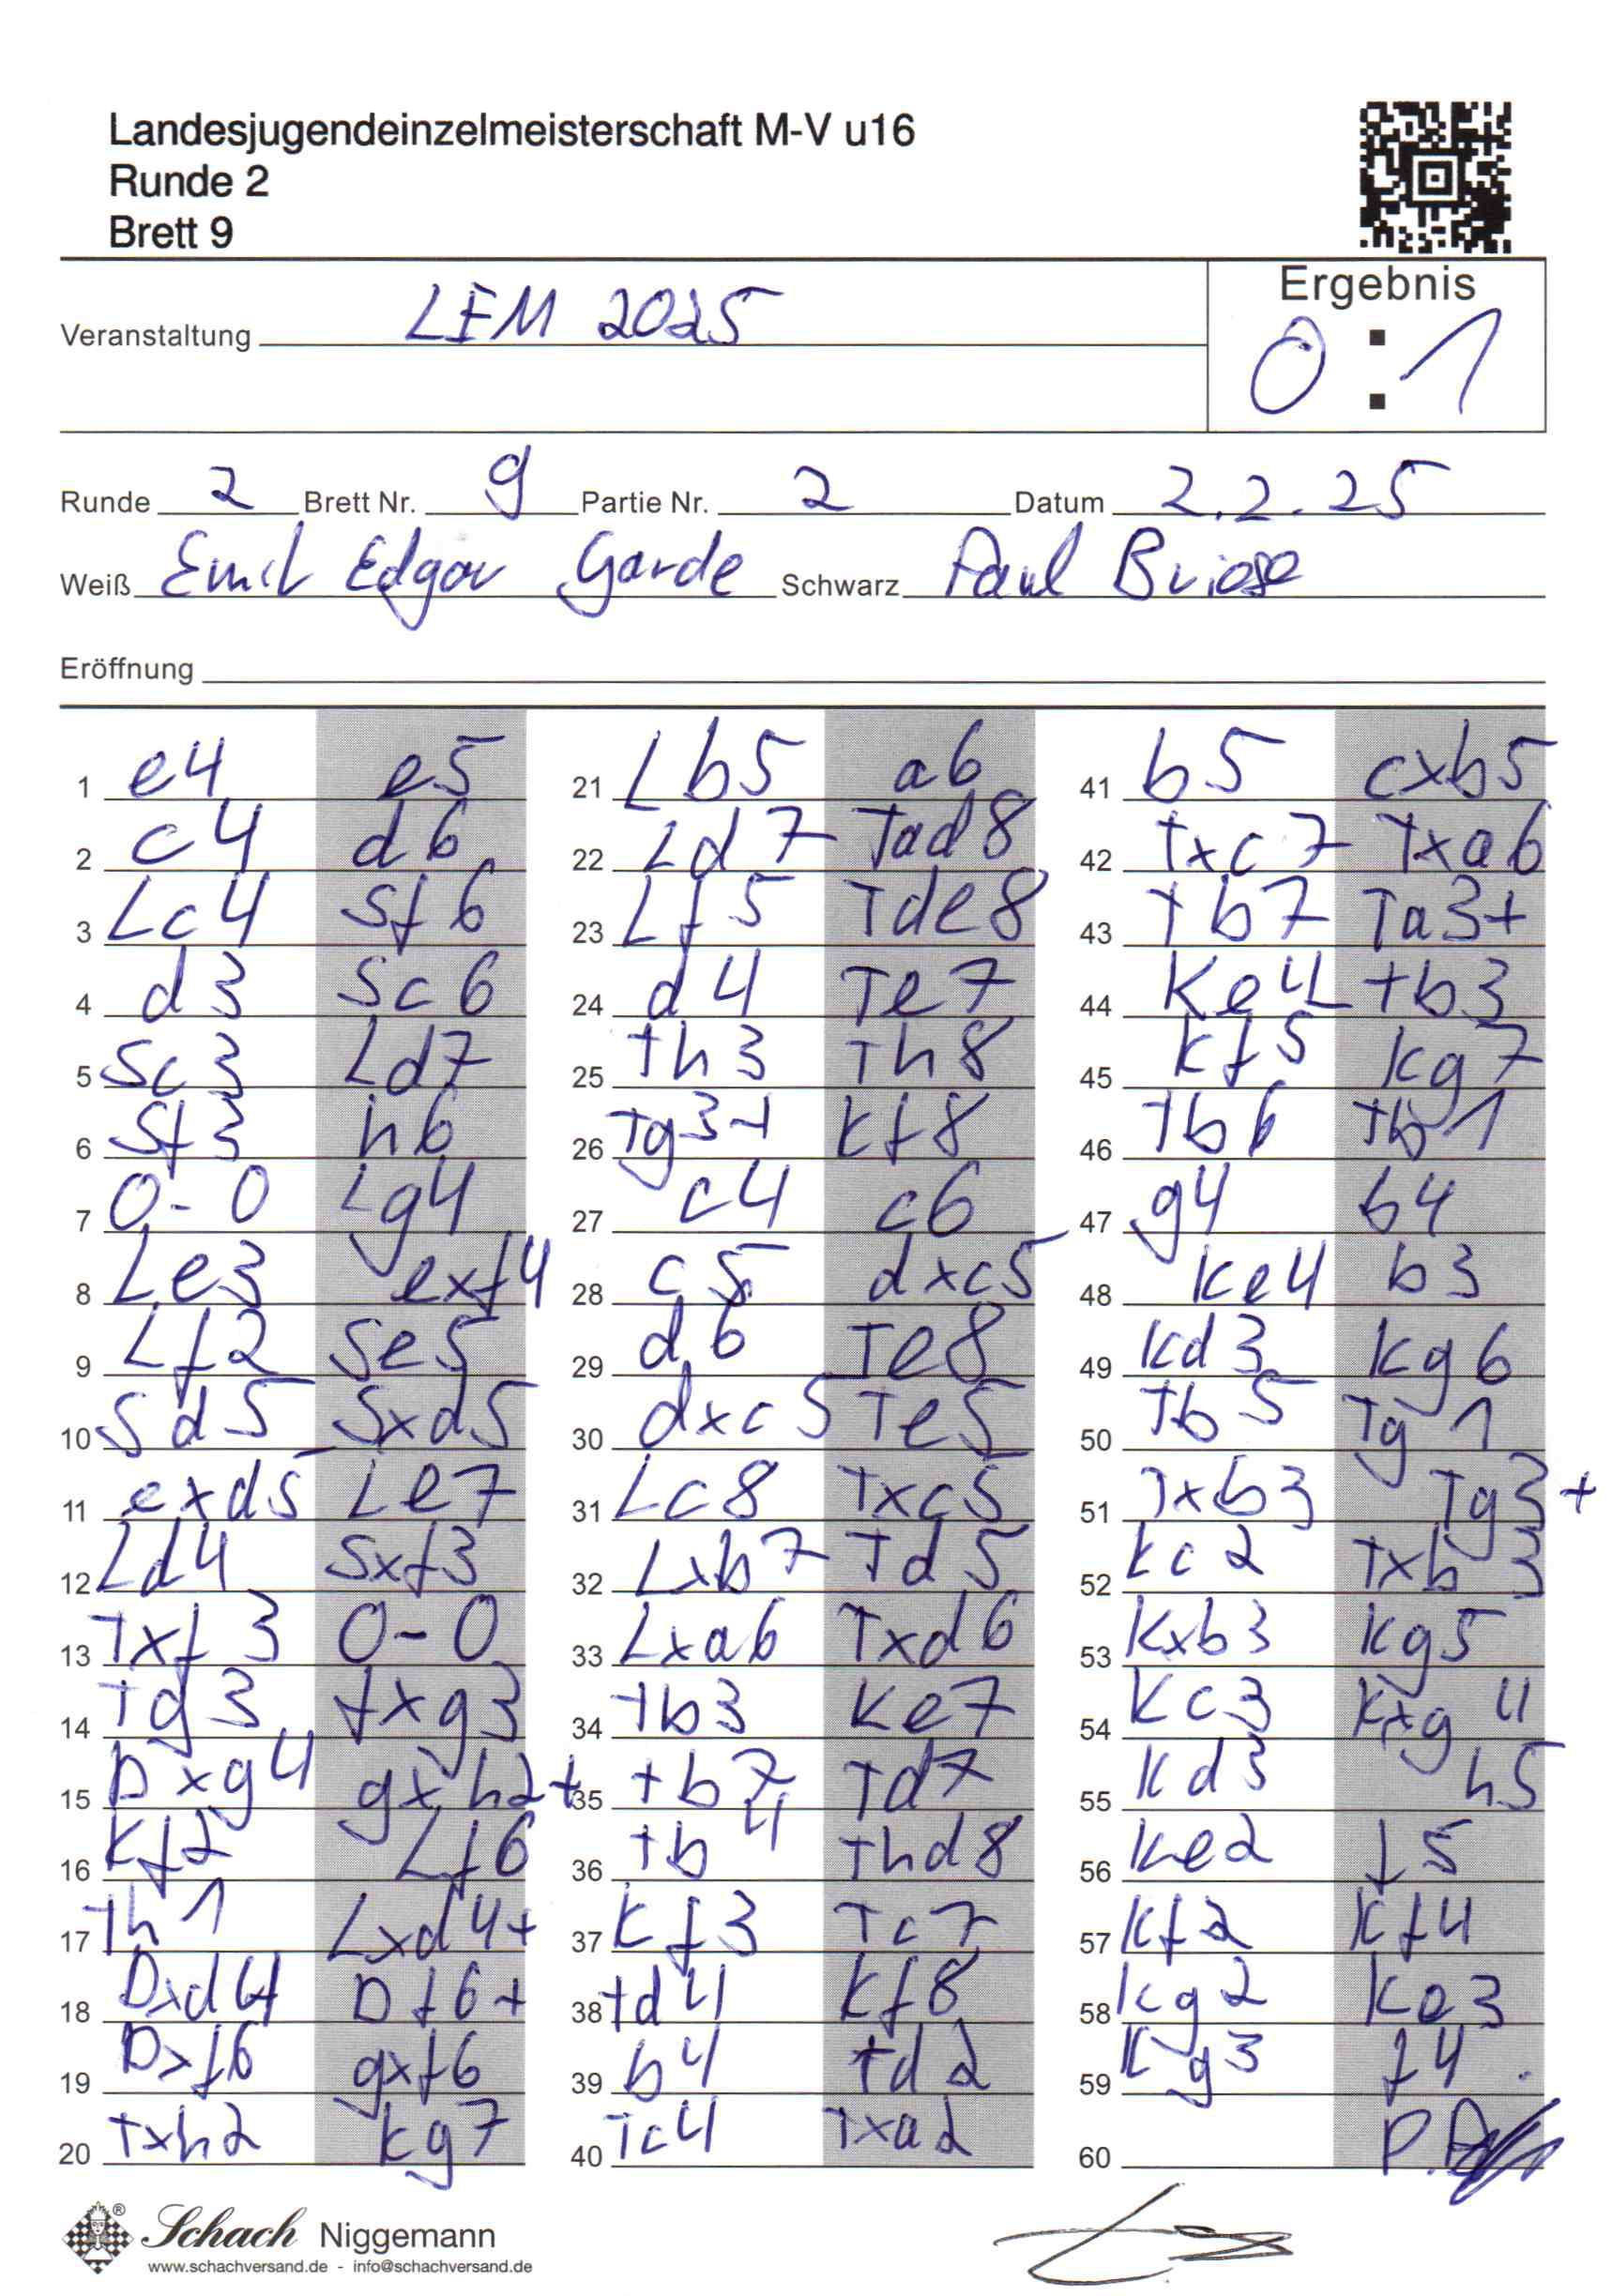 Landesjugendeinzelmeisterschaft M-V u16
Runde 2
Brett 9
Ergebnis
Veranstaltung LEM 2025
0 : 1
Runde 2 Brett Nr. 9 Partie Nr. 2 Datum 2.2.25
Weiß Emil Edgar Garde Schwarz Paul Briese
Eröffnung
1 e4 e5
2 c4 d6
3 Lc4 Sf6
4 d3 Sc6
5 Sc3 Ld7
6 Sf3 h6
7 0-0 Lg4
8 Le3 exf4
9 Lf2 Se5
10 Sd5 Sxd5
11 exd5 Le7
12 Ld4 Sxf3
13 Txf3 0-0
14 Tg3 fxg3
15 Dxg4 gxh2+
16 Kf2 Lf6
17 Th1 Lxd4+
18 Dxd4 Df6+
19 Dxf6 gxf6
20 Txh2 Kg7
21 Lb5 a6
22 Ld7 Tad8
23 Lf5 Tde8
24 d4 Te7
25 Th3 Th8
26 Tg3+ Kf8
27 c4 c6
28 c5 dxc5
29 d6 Te8
30 dxc5 Te5
31 Lc8 Txc5
32 Lxb7 Td5
33 Lxa6 Txd6
34 Tb3 Ke7
35 Tb7 Td7
36 Tb4 Thd8
37 Kf3 Tc7
38 Td4 Kf8
39 b4 Td2
40 Tc4 Txa2
41 b5 cxb5
42 Txc7 Txa6
43 Tb7 Ta3+
44 Ke4 Tb3
45 Kf5 Kg7
46 Tb6 Tb1
47 g4 b4
48 Ke4 b3
49 Kd3 Kg6
50 Tb5 Tg1
51 Txb3 Tg3+
52 Kc2 Txb3
53 Kxb3 Kg5
54 Kc3 Kxg4
55 Kd3 h5
56 Ke2 f5
57 Kf2 Kf4
58 Kg2 Ke3
59 Kg3 f4
60
Schach Niggemann
www.schachversand.de - info@schachversand.de